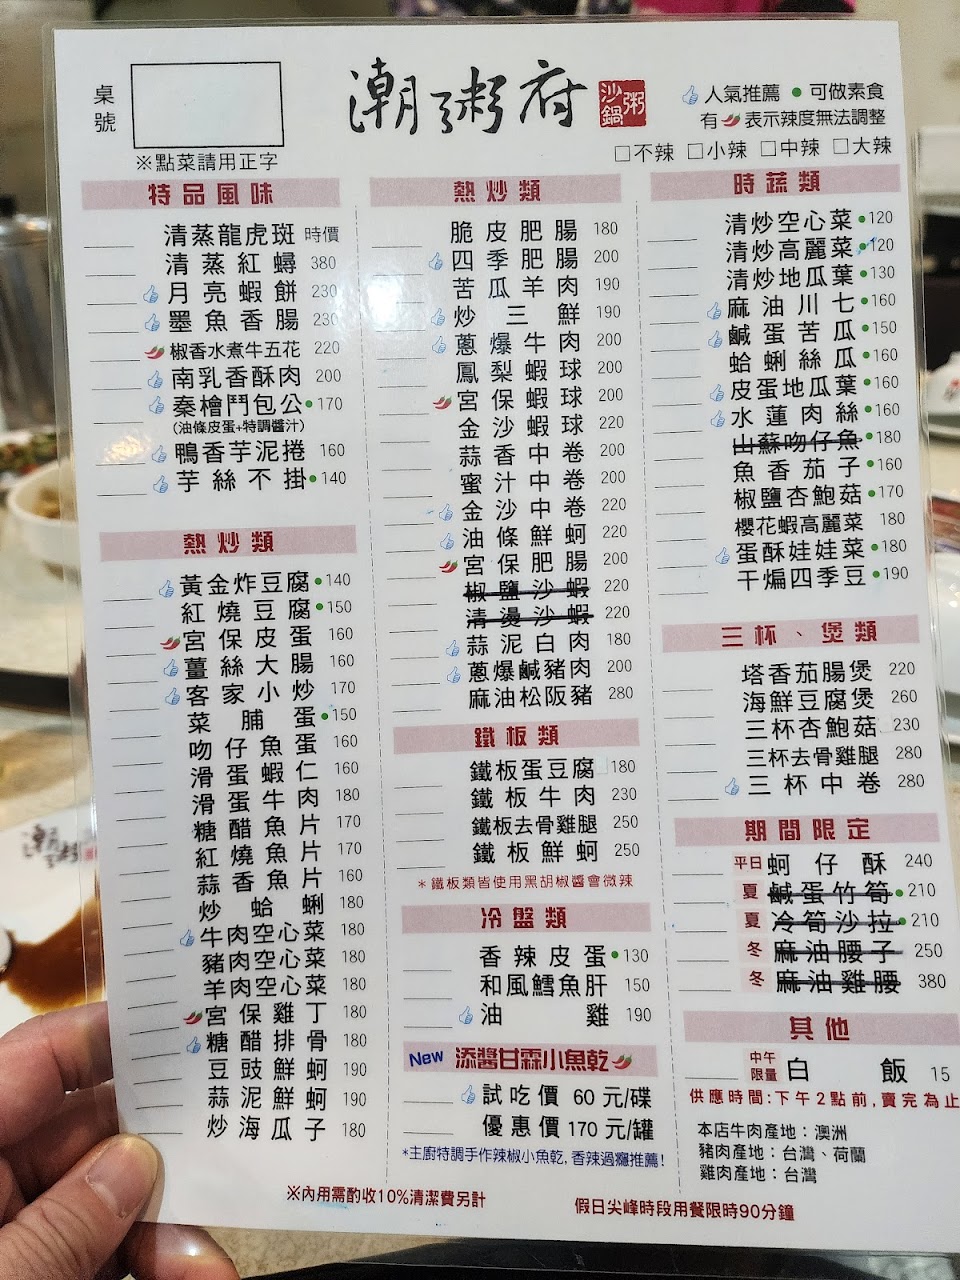 桌號
※點菜請用正字
潮粥府 沙鍋粥
人氣推薦 ●可做素食
有 表示辣度無法調整
□不辣 □小辣 □中辣 □大辣
特品風味
清蒸龍虎斑 時價
清蒸紅蟳 380
月亮蝦餅 230
墨魚香腸 230
椒香水煮牛五花 220
南乳香酥肉 200
秦檜鬥包公●170
(油條皮蛋+特調醬汁)
鴨香芋泥捲 160
芋絲不掛●140
熱炒類
黃金炸豆腐●140
紅燒豆腐●150
宮保皮蛋 160
薑絲大腸 160
客家小炒 170
菜脯蛋●150
吻仔魚蛋 160
滑蛋蝦仁 160
滑蛋牛肉 180
糖醋魚片 170
紅燒魚片 170
蒜香魚片 160
炒蛤蜊 180
牛肉空心菜 180
豬肉空心菜 180
羊肉空心菜 180
宮保雞丁 180
糖醋排骨 180
豆豉鮮蚵 190
蒜泥鮮蚵 190
炒海瓜子 180
熱炒類
脆皮肥腸 180
四季肥腸 200
苦瓜羊肉 190
炒三鮮 190
蔥爆牛肉 200
鳳梨蝦球 200
宮保蝦球 200
金沙蝦球 220
蒜香中卷 200
蜜汁中卷 200
金沙中卷 220
油條鮮蚵 220
宮保肥腸 200
椒鹽沙蝦 220
清燙沙蝦 220
蒜泥白肉 180
蔥爆鹹豬肉 200
麻油松阪豬 280
鐵板類
鐵板蛋豆腐 180
鐵板牛肉 230
鐵板去骨雞腿 250
鐵板鮮蚵 250
*鐵板類皆使用黑胡椒醬會微辣
冷盤類
香辣皮蛋●130
和風鱈魚肝 150
油雞 190
New 添醬甘霖小魚乾
試吃價 60 元/碟
優惠價 170 元/罐
*主廚特調手作辣椒小魚乾,香辣過癮推薦!
時蔬類
清炒空心菜●120
清炒高麗菜●120
清炒地瓜葉●130
麻油川七●160
鹹蛋苦瓜●150
蛤蜊絲瓜●160
皮蛋地瓜葉●160
水蓮肉絲●160
山蘇吻仔魚●180
魚香茄子●160
椒鹽杏鮑菇●170
櫻花蝦高麗菜 180
蛋酥娃娃菜●180
干煸四季豆●190
三杯、煲類
塔香茄腸煲 220
海鮮豆腐煲 260
三杯杏鮑菇 230
三杯去骨雞腿 280
三杯中卷 280
期間限定
平日 蚵仔酥 240
夏 鹹蛋竹筍●210
夏 冷筍沙拉●210
冬 麻油腰子 250
冬 麻油雞腰 380
其他
中午限量 白飯 15
供應時間:下午2點前,賣完為止
本店牛肉產地：澳洲
豬肉產地：台灣、荷蘭
雞肉產地：台灣
※內用需酌收10%清潔費另計
假日尖峰時段用餐限時90分鐘